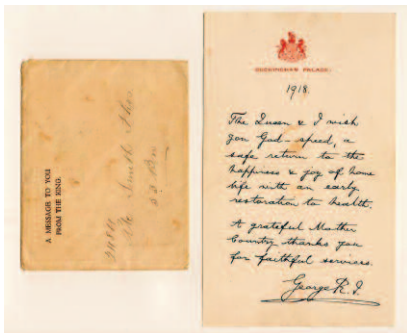 A MESSAGE TO YOU
FROM THE KING.
Smith
BUCKINGHAM PALACE
1918.
The Queen & I wish
you God-speed, a
safe return to the
happiness & joy of home
life with an early
restoration to health.
A grateful Mother
Country thanks you
for faithful services.
George R.I.